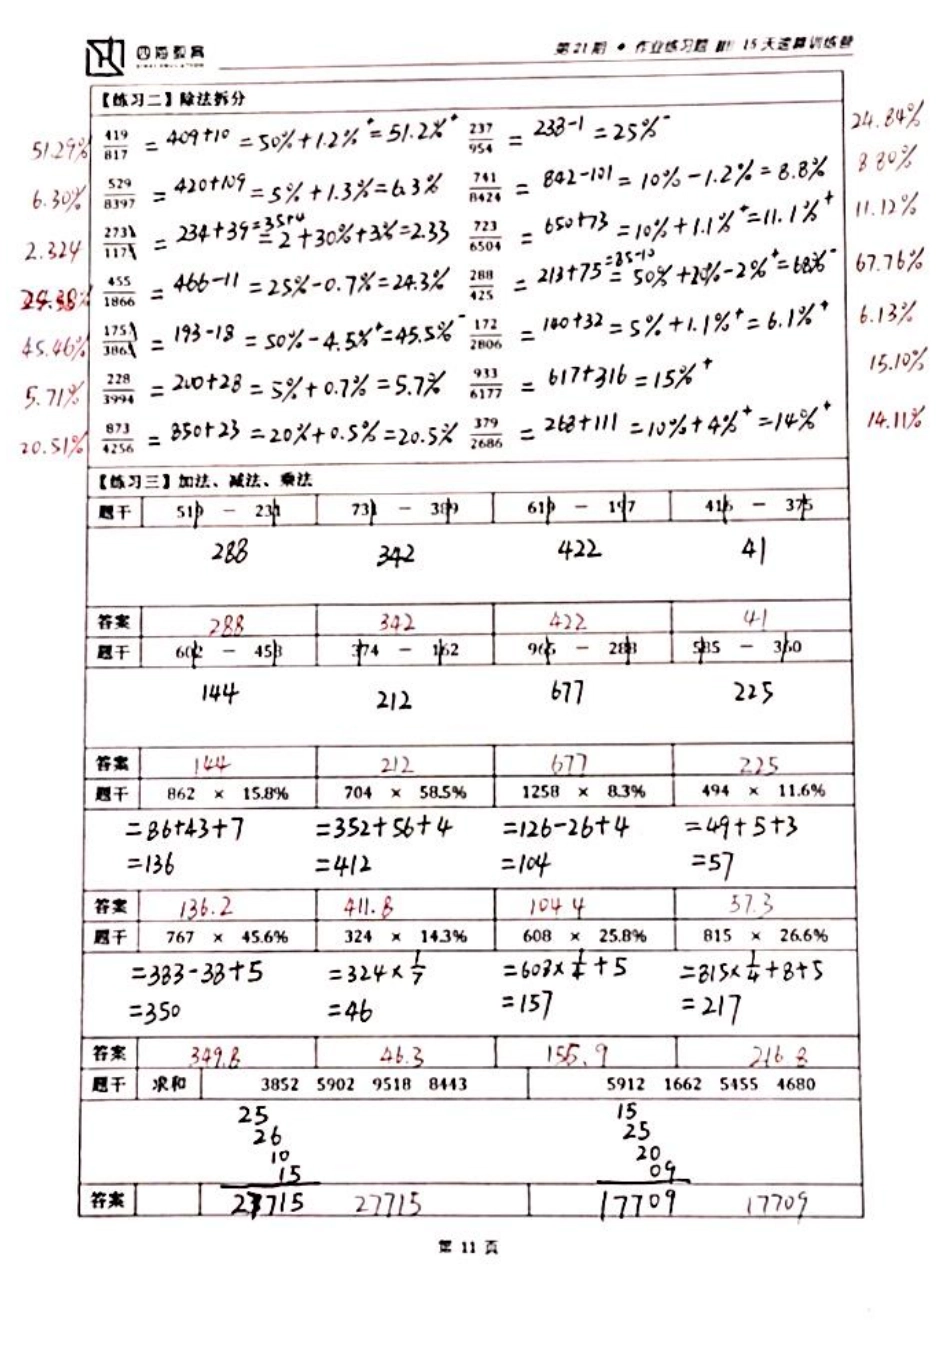 四海教育
第21期 • 作业练习题 册 15天速算训练营
【练习二】除法拆分
51.29% 419/817 = 409+10 = 50%+1.2%⁺ = 51.2%⁺ 237/954 = 238-1 = 25%⁻ 24.84%
6.30% 529/8397 = 420+109 = 5%+1.3% = 6.3% 741/8424 = 842-101 = 10%-1.2% = 8.8% 8.80%
2.324 2731/1171 = 234+39 = 2+30%+3% = 2.33 723/6504 = 650+73 = 10%+1.1%⁺ = 11.1%⁺ 11.12%
24.38% 455/1866 = 466-11 = 25%-0.7% = 24.3% 288/425 = 213+75 = 50%+20%-2%⁺ = 68%⁻ 67.76%
45.46% 175/386 = 193-18 = 50%-4.5%⁺ = 45.5%⁻ 172/2806 = 140+32 = 5%+1.1%⁺ = 6.1%⁺ 6.13%
5.71% 228/3994 = 200+28 = 5%+0.7% = 5.7% 933/6177 = 617+316 = 15%⁺ 15.10%
20.51% 873/4256 = 850+23 = 20%+0.5% = 20.5% 379/2686 = 268+111 = 10%+4%⁺ = 14%⁺ 14.11%
【练习三】加法、减法、乘法
题干 519 - 231 731 - 389 619 - 197 416 - 375
288 342 422 41
答案 288 342 422 41
题干 602 - 458 374 - 162 965 - 288 585 - 360
144 212 677 225
答案 144 212 677 225
题干 862 × 15.8% 704 × 58.5% 1258 × 8.3% 494 × 11.6%
=86+43+7 =352+56+4 =126-26+4 =49+5+3
=136 =412 =104 =57
答案 136.2 411.8 104.4 57.3
题干 767 × 45.6% 324 × 14.3% 608 × 25.8% 815 × 26.6%
=383-38+5 =324×1/7 =608×1/4+5 =815×1/4+8+5
=350 =46 =157 =217
答案 349.8 46.3 156.9 216.8
题干 求和 3852 5902 9518 8443 5912 1662 5455 4680
25 15
26 25
10 20
15 09
答案 27715 27715 17709 17709
第 11 页